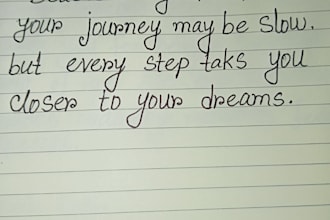 your journey may be slow.
but every step taks you
closer to your dreams.